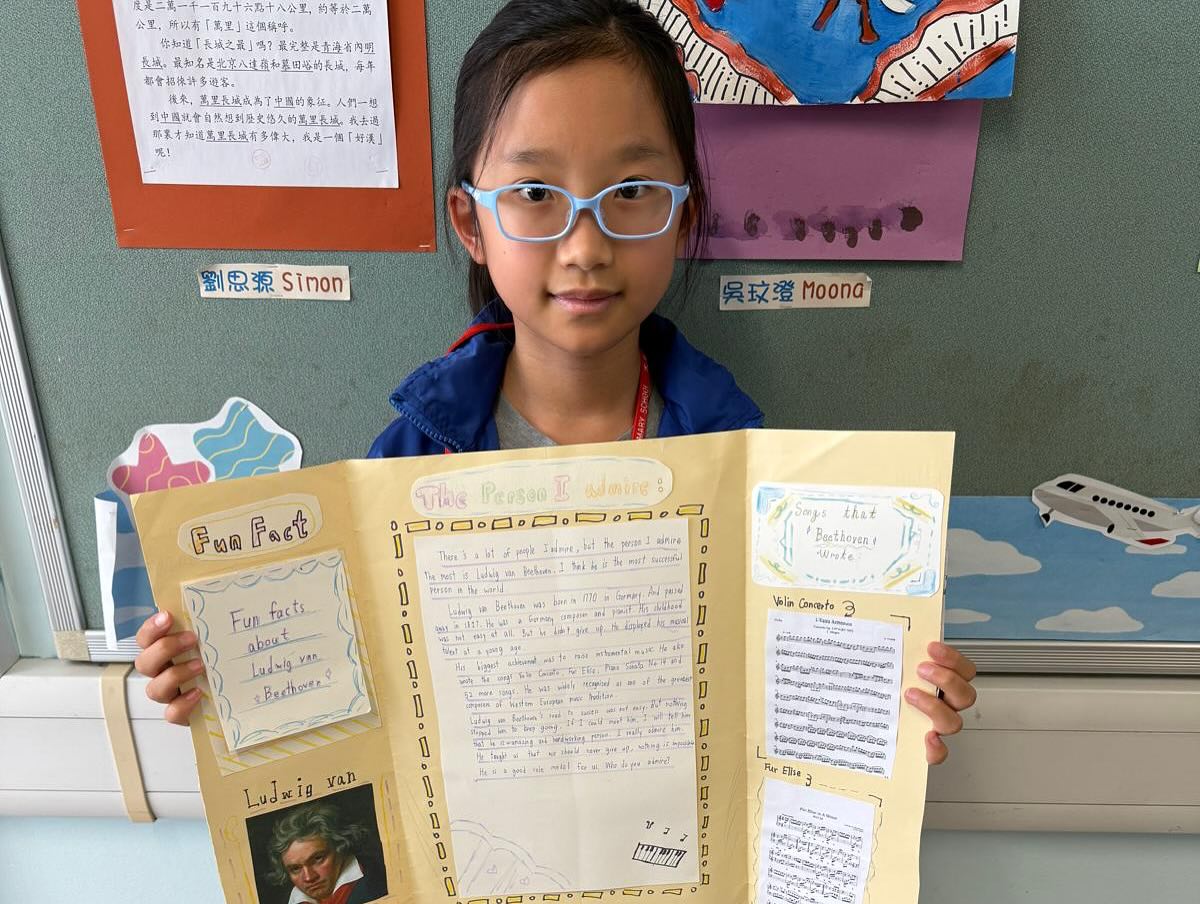 度是二萬一千一百九十六點十八公里，約等於二萬
公里，所以有「萬里」這個稱呼。
你知道「長城之最」嗎？最完整是青海省內明
長城。最知名是北京八達嶺和慕田峪的長城，每年
都會招徠許多遊客。
後來，萬里長城成為了中國的象征。人們一想
到中國就會自然想到歷史悠久的萬里長城。我去過
那裏才知道萬里長城有多偉大，我是一個「好漢」
呢！
劉思源 Simon
吳玟澄 Moona
MARY SCHOOL
Fun Fact
Fun facts
about
Ludwig van
Beethoven
Ludwig van
The Person I admire:
There's a lot of people I admire, but the person I admire
The most is Ludwig van Beethoven. I think he is the most successful
person in the world.
Ludwig van Beethoven was born in 1770 in Germany. And passed
away in 1827. He was a Germany composer and pianist. His childhood
was not easy at all. But he didn't give up. He displayed his musical
talent at a young age.
His biggest achievement was to raise instrumental music. He also
wrote the songs Violin Concerto, Für Elise, Piano Sonata No.14 and
82 more songs. He was widely recognised as one of the greatest
composer of Western European music tradition.
Ludwig van Beethoven's road to success was not easy. But nothing
stopped him to keep going. If I could meet him, I will tell him
that he is amazing and hardworking person. I really admire him.
He taught us that we should never give up, nothing is impossible
He is a good role model for us. Who do you admire?
Songs that
Beethoven
Wrote:
Volin Concerto
Fur Elise